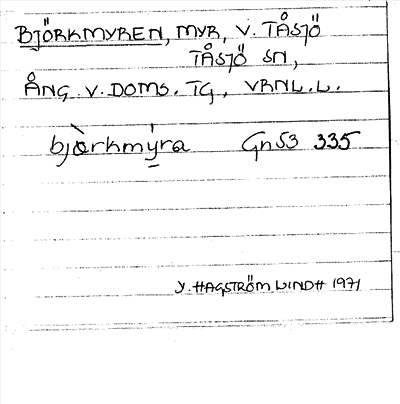 BJÖRKMYREN, MYR, V. TÅSJÖ
TÅSJÖ SN,
ÅNG. V. DOMS. TG., VRNL.L.
bjòrkmý̲ra Gn53 335
Y. HAGSTRÖM LINDH 1971